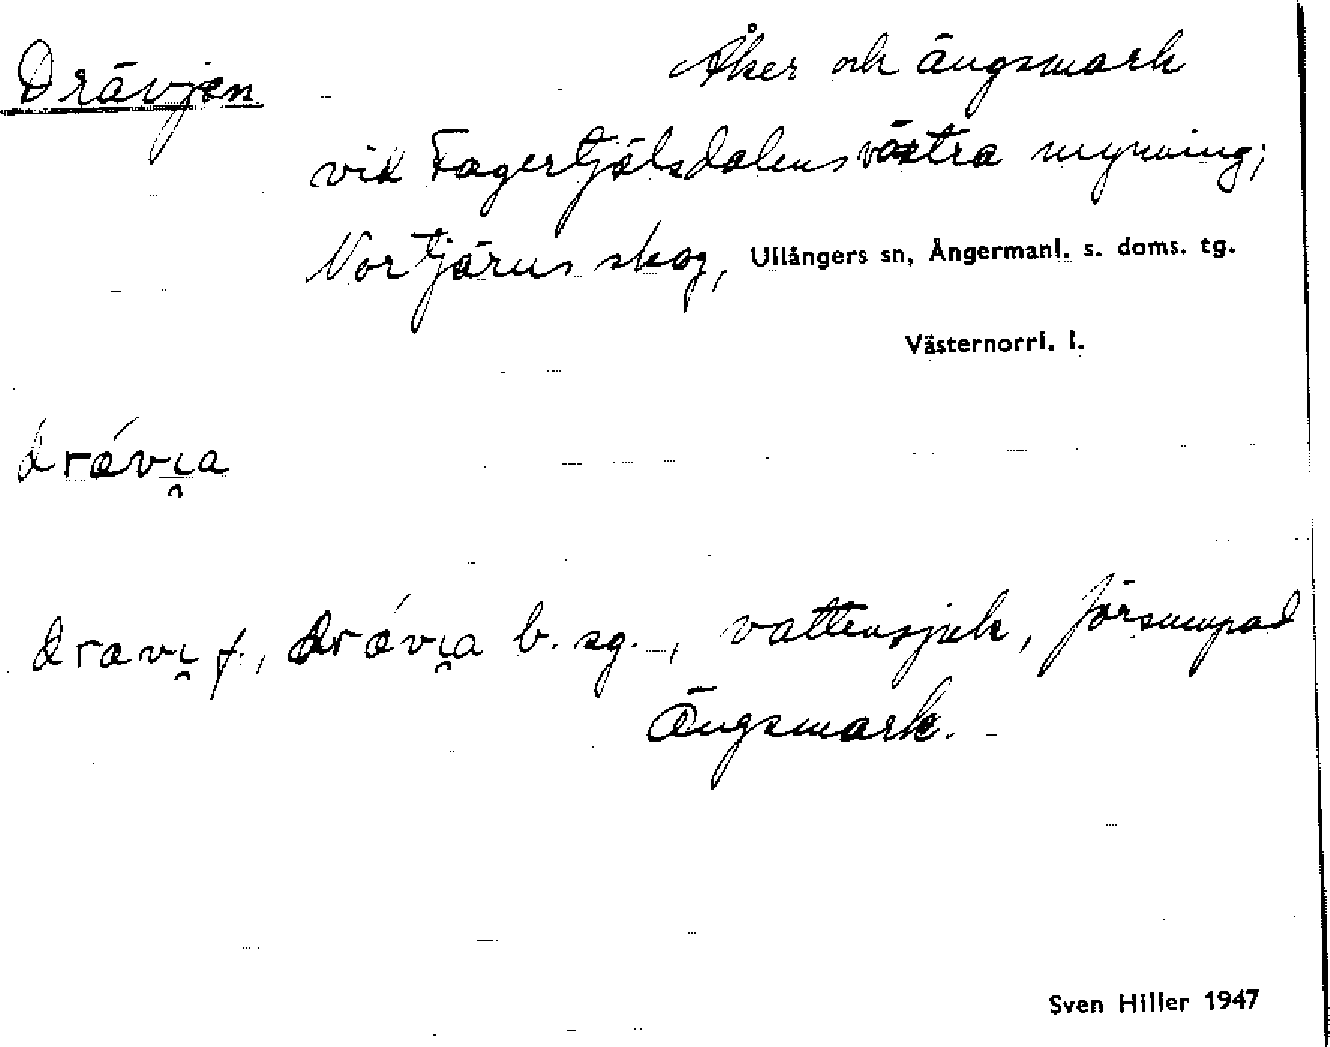 Drävjan Åker och ängsmark
vid Fagertjälsdalens västra mynning;
Nortjärns skog, Ullångers sn, Ångermanl. s. doms. tg.
Västernorrl. l.
drǽvı̯a
drævı̯ f., drǽvı̯a b. sg., vattensjuk, försumpad
ängsmark.
Sven Hiller 1947